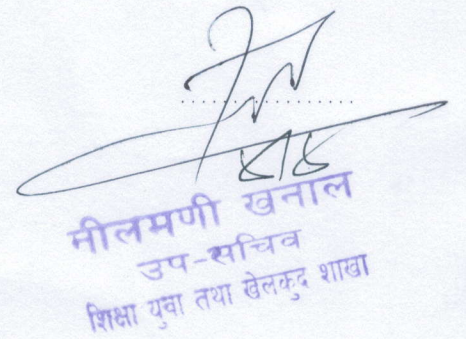 ४/८
नीलमणी खनाल
उप-सचिव
शिक्षा युवा तथा खेलकुद शाखा